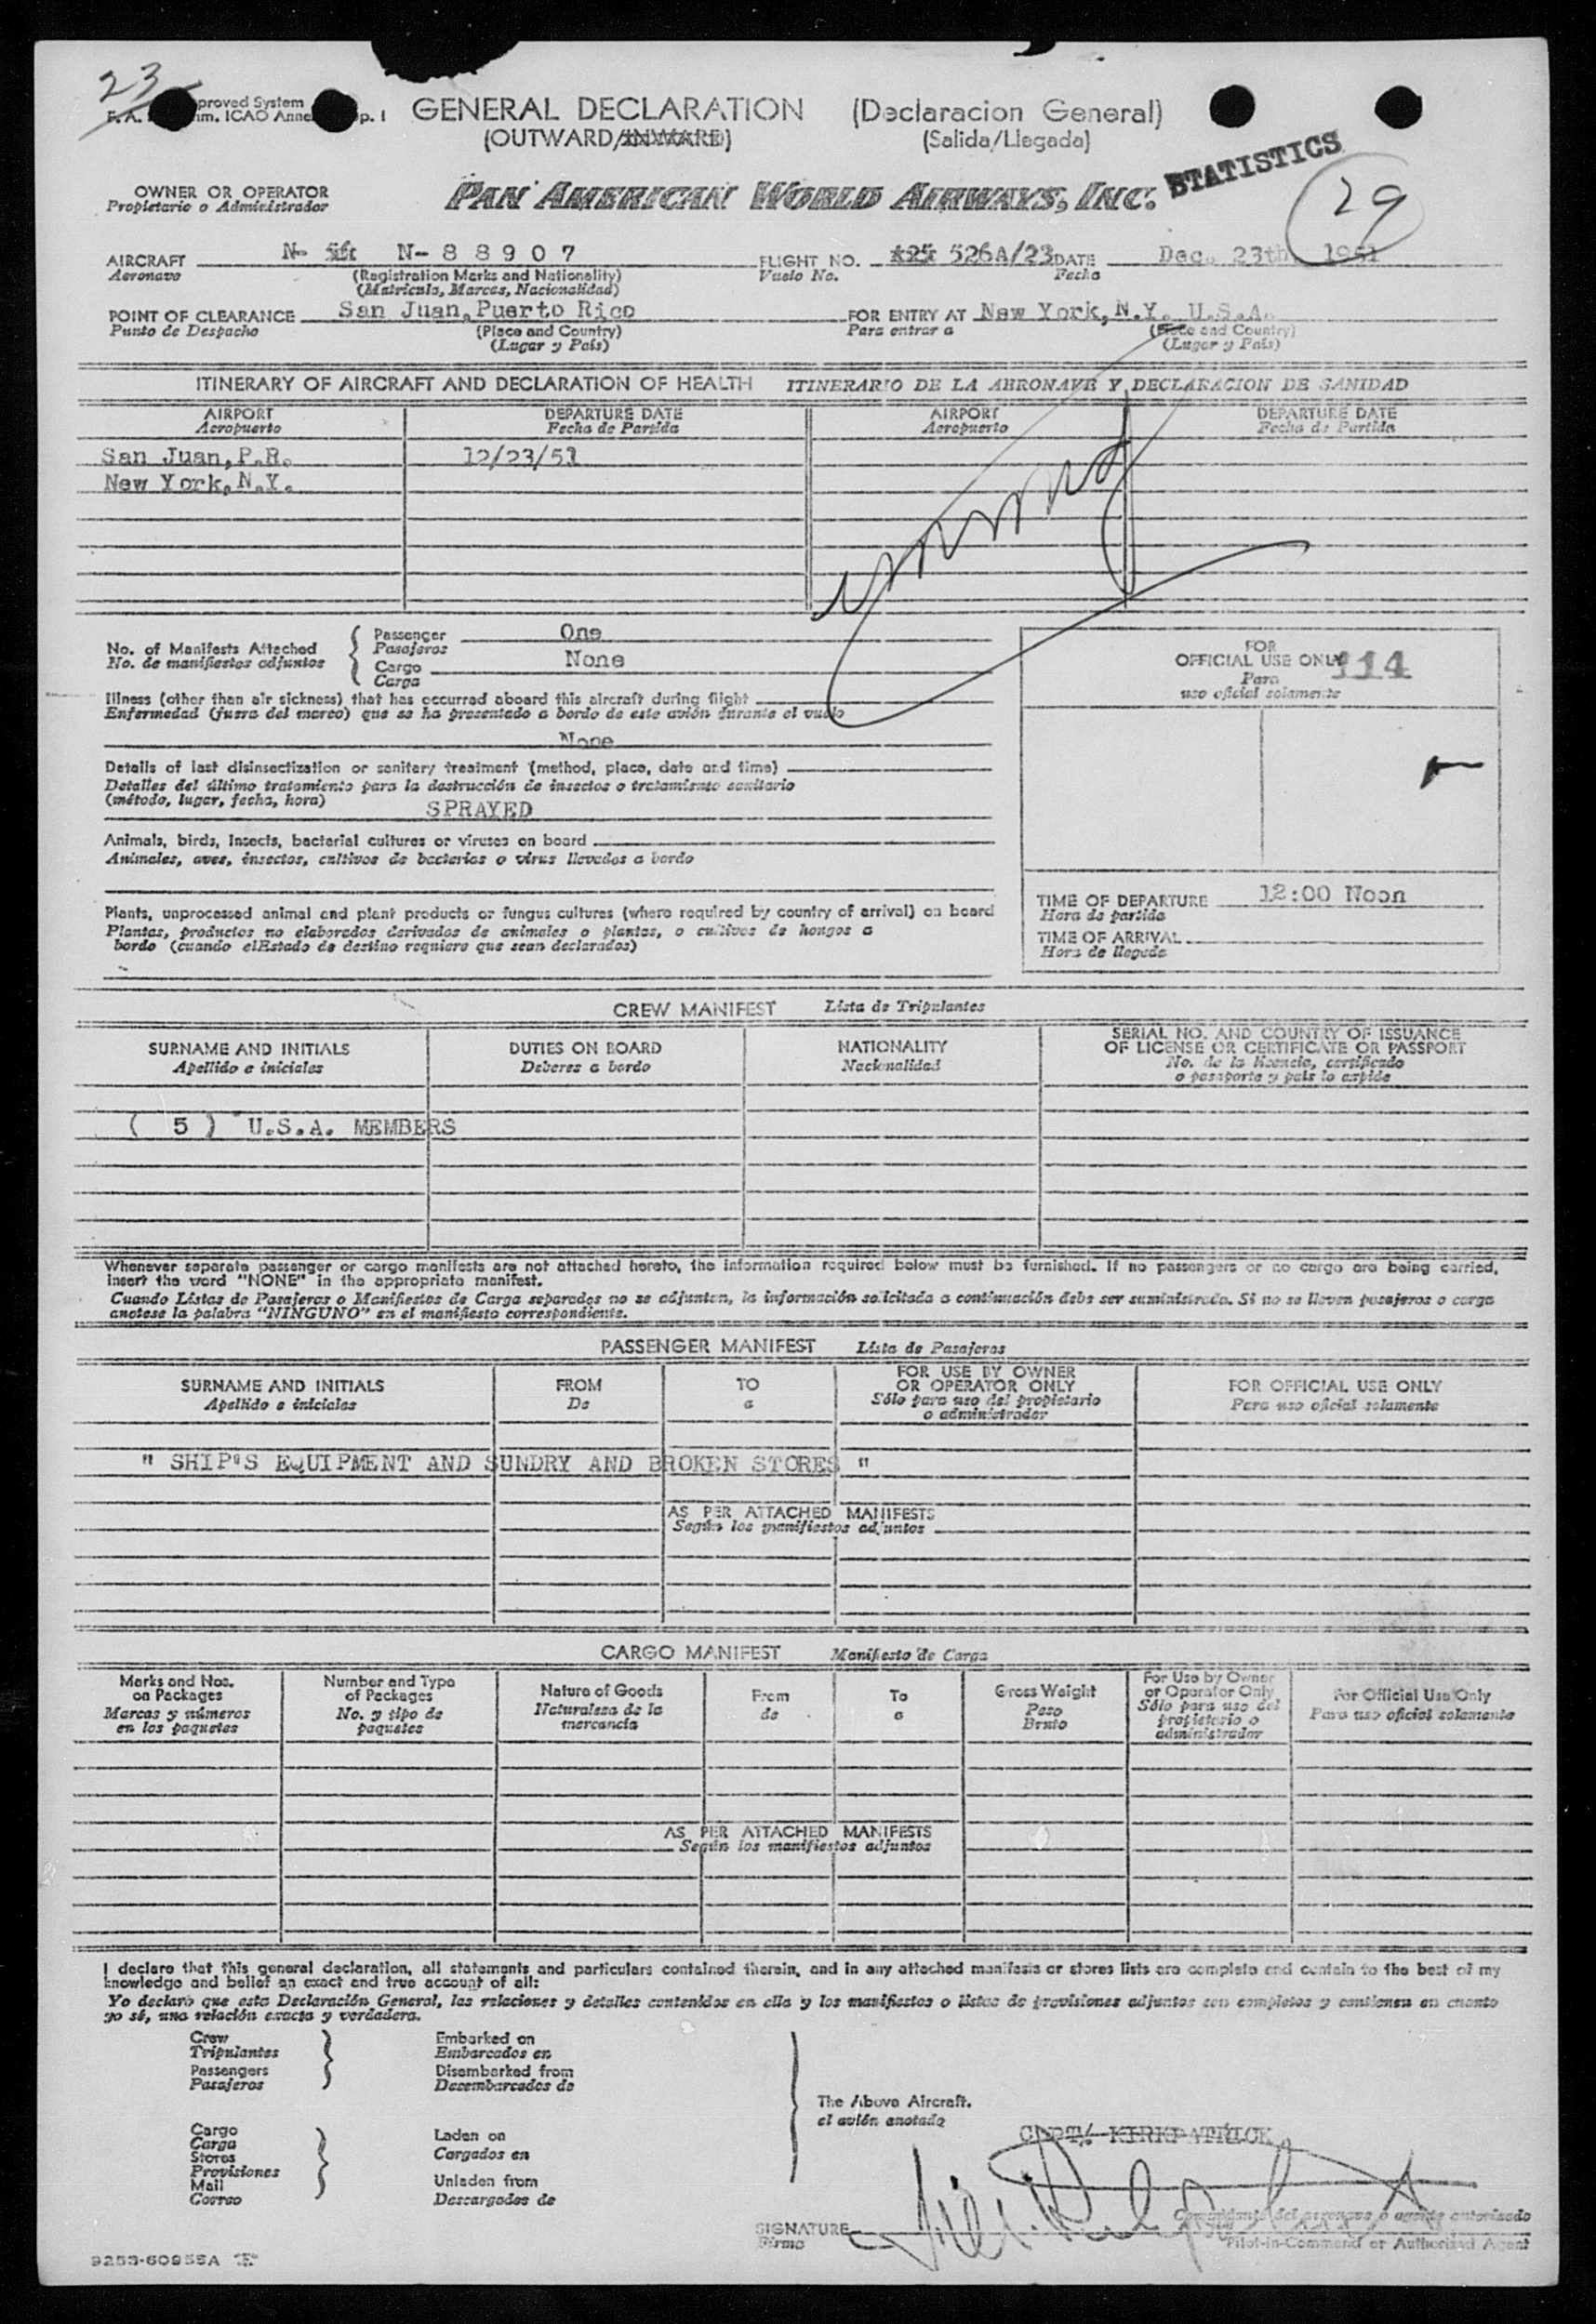 23
proved System
mm. ICAO Anne p. 1
GENERAL DECLARATION (Declaracion General)
(OUTWARD/INWARD) (Salida/Llegada)
STATISTICS
29
OWNER OR OPERATOR
Propietario o Administrador
PAN AMERICAN WORLD AIRWAYS, INC.
AIRCRAFT N- N-88907 FLIGHT NO. 526A/23 DATE Dec. 23th 1951
Aeronave (Registration Marks and Nationality) Vuelo No. Fecha
(Matricula, Marcas, Nacionalidad)
POINT OF CLEARANCE San Juan, Puerto Rico FOR ENTRY AT New York, N.Y. U.S.A.
Punto de Despacho (Place and Country) Para entrar a (Place and Country)
(Lugar y País) (Lugar y País)
ITINERARY OF AIRCRAFT AND DECLARATION OF HEALTH ITINERARIO DE LA AERONAVE Y DECLARACION DE SANIDAD
AIRPORT DEPARTURE DATE AIRPORT DEPARTURE DATE
Aeropuerto Fecha de Partida Aeropuerto Fecha de Partida
San Juan, P.R. 12/23/51
New York, N.Y.
No. of Manifests Attached
No. de manifiestos adjuntos
Passenger One
Pasajeros
Cargo None
Carga
FOR
OFFICIAL USE ONLY 114
Para
uso oficial solamente
Illness (other than air sickness) that has occurred aboard this aircraft during flight
Enfermedad (fuera del mareo) que se ha presentado a bordo de este avión durante el vuelo
None
Details of last disinsectization or sanitary treatment (method, place, date and time)
Detalles del último tratamiento para la destrucción de insectos o tratamiento sanitario
(método, lugar, fecha, hora)
SPRAYED
Animals, birds, insects, bacterial cultures or viruses on board
Animales, aves, insectos, cultivos de bacterias o virus llevados a bordo
Plants, unprocessed animal and plant products or fungus cultures (where required by country of arrival) on board
Plantas, productos no elaborados derivados de animales o plantas, o cultivos de hongos a
bordo (cuando elEstado de destino requiere que sean declarados)
TIME OF DEPARTURE 12:00 Noon
Hora de partida
TIME OF ARRIVAL
Hora de llegada
CREW MANIFEST Lista de Tripulantes
SURNAME AND INITIALS DUTIES ON BOARD NATIONALITY SERIAL NO. AND COUNTRY OF ISSUANCE
OF LICENSE OR CERTIFICATE OR PASSPORT
Apellido e iniciales Deberes a bordo Nacionalidad No. de la licencia, certificado
o pasaporte y país lo expide
( 5 ) U.S.A. MEMBERS
Whenever separate passenger or cargo manifests are not attached hereto, the information required below must be furnished. If no passengers or no cargo are being carried,
insert the word "NONE" in the appropriate manifest.
Cuando Listas de Pasajeros o Manifiestos de Carga separados no se adjunten, la información solicitada a continuación debe ser suministrada. Si no se lleven pasajeros o carga
anotese la palabra "NINGUNO" en el manifiesto correspondiente.
PASSENGER MANIFEST Lista de Pasajeros
SURNAME AND INITIALS FROM TO FOR USE BY OWNER
OR OPERATOR ONLY FOR OFFICIAL USE ONLY
Apellido e iniciales De a Sólo para uso del propietario
o administrador Para uso oficial solamente
" SHIP'S EQUIPMENT AND SUNDRY AND BROKEN STORES "
AS PER ATTACHED MANIFESTS
Según los manifiestos adjuntos
CARGO MANIFEST Manifiesto de Carga
Marks and Nos.
on Packages
Marcas y números
en los paquetes
Number and Type
of Packages
No. y tipo de
paquetes
Nature of Goods
Naturalesa de la
mercancía
From
de
To
a
Gross Weight
Peso
Bruto
For Use by Owner
or Operator Only
Sólo para uso del
propietario o
administrador
For Official Use Only
Para uso oficial solamente
AS PER ATTACHED MANIFESTS
Según los manifiestos adjuntos
I declare that this general declaration, all statements and particulars contained therein, and in any attached manifests or stores lists are complete and contain to the best of my
knowledge and belief an exact and true account of all:
Yo declaro que esta Declaración General, las relaciones y detalles contenidos en ella y los manifiestos o listas de provisiones adjuntos son completos y contienen en cuanto
yo sé, una relación exacta y verdadera.
Crew
Tripulantes
Passengers
Pasajeros
Embarked on
Embarcados en
Disembarked from
Desembarcados de
Cargo
Carga
Stores
Provisiones
Mail
Correo
Laden on
Cargados en
Unladen from
Descargados de
The Above Aircraft.
el avión anotado
CAPT/ KIRKPATRICK
Comandante del aeronave o agente autorizado
SIGNATURE
Firma
Pilot-in-Command or Authorized Agent
9253-60955A